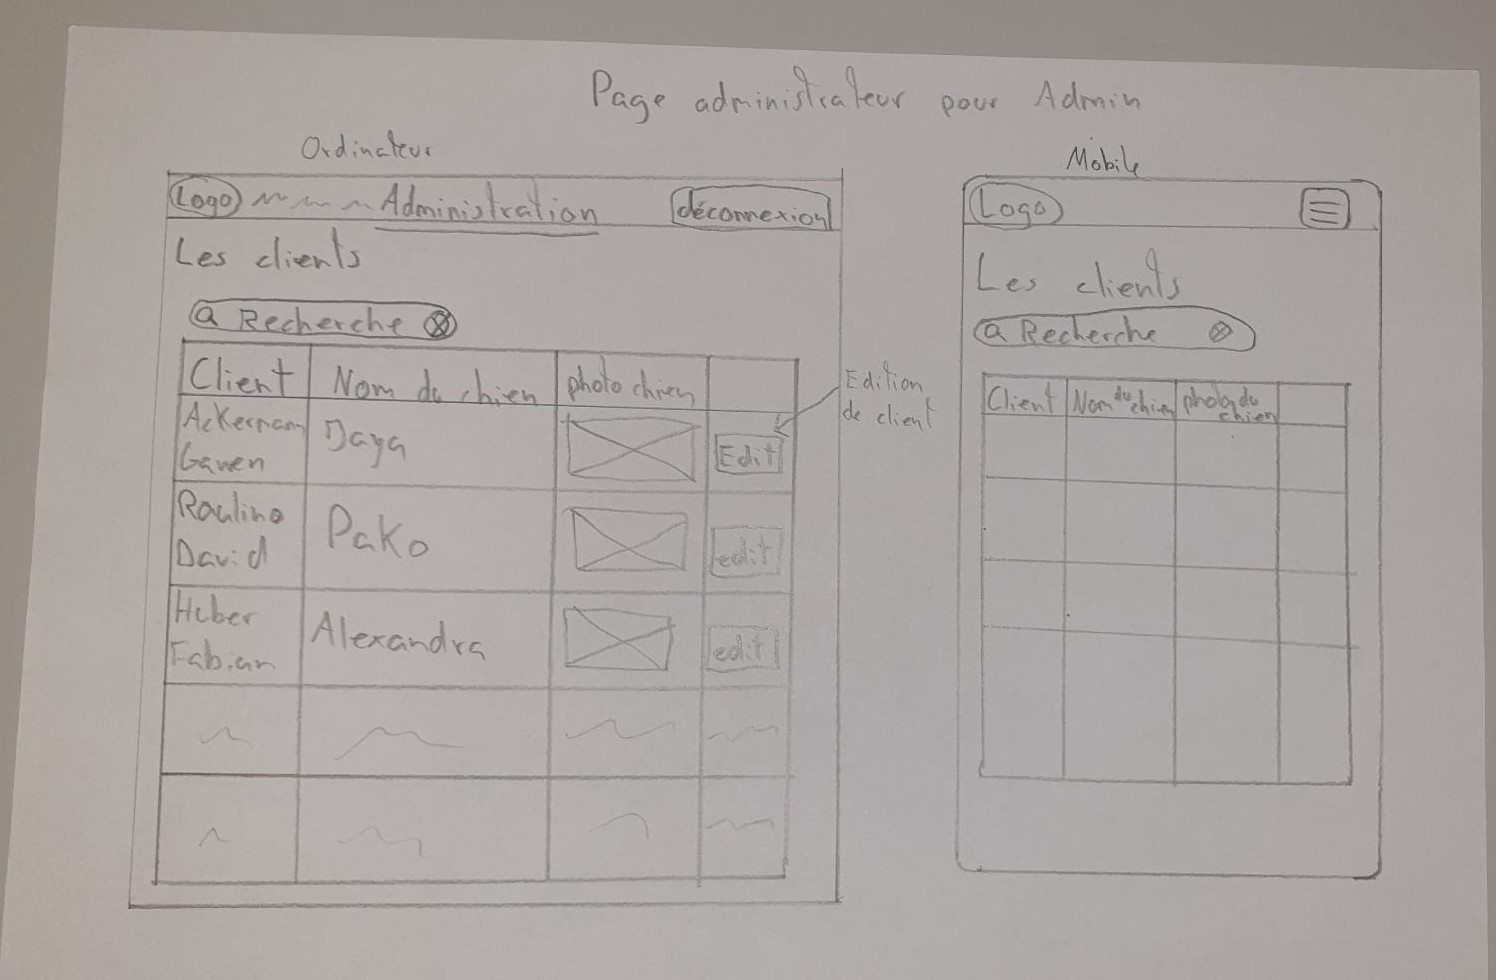 Page administrateur pour Admin
Ordinateur
Logo Administration déconnexion
Les clients
Recherche
Client Nom du chien photo chien
Ackerman Gawen Daya Edit
Raulino David Pako edit
Huber Fabian Alexandra edit
Edition
de client
Mobile
Logo
Les clients
Recherche
Client Nom du chien photo du chien